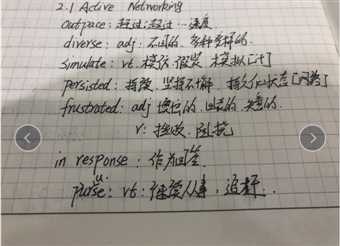 2.1 Active Networking
outpace: 超过; 超过…速度
diverse: adj. 不同的. 多种多样的.
simulate: vt. 模仿. 假装. 模拟[计]
persisted: 持续. 坚持不懈. 持久化状态[网络]
frustrated: adj 懊恼的. 沮丧的. 失意的.
v: 挫败. 阻挠
in response: 作为回答
pursue: vt: 继续从事, 追赶.